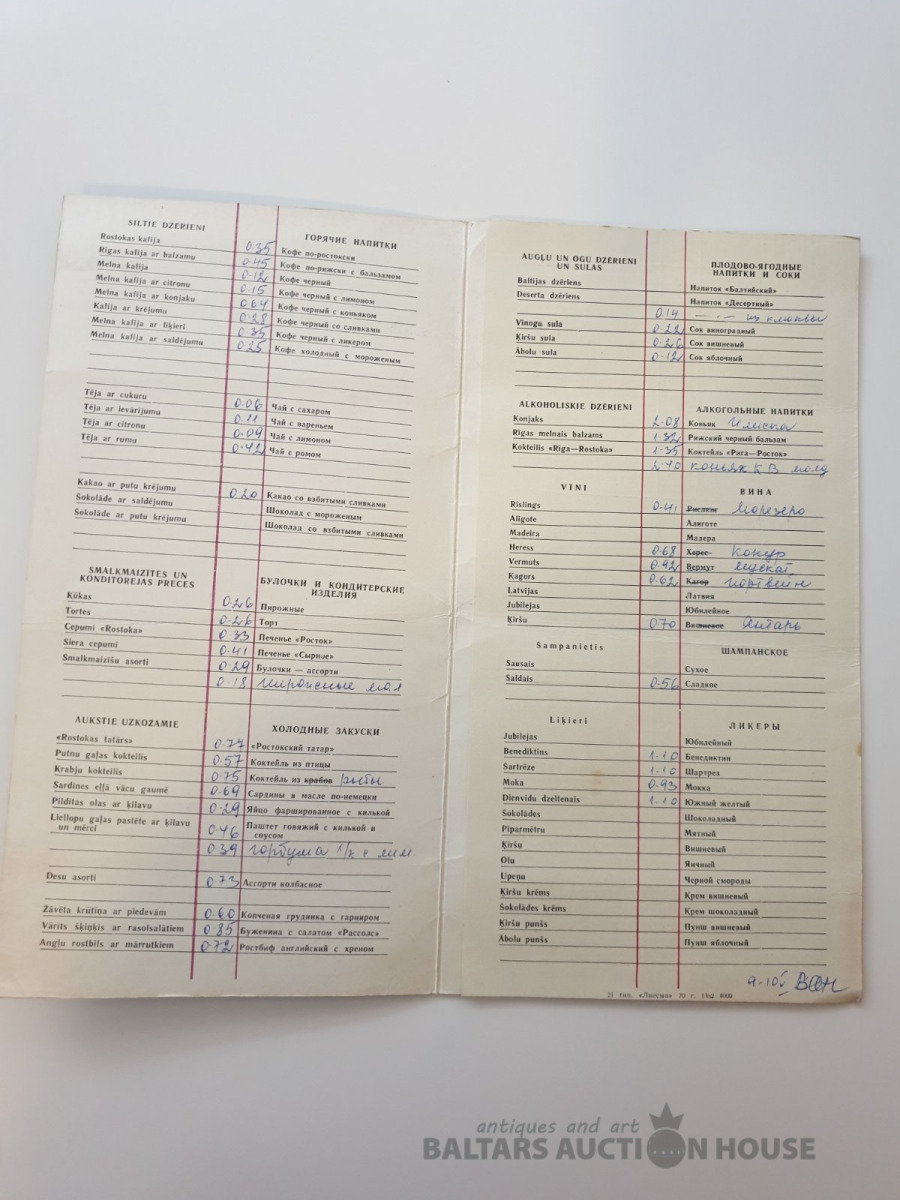 SILTIE DZĒRIENI ГОРЯЧИЕ НАПИТКИ
Rostokas kafija 0.35 Кофе по-ростокски
Rīgas kafija ar balzamu 0.45 Кофе по-рижски с бальзамом
Melna kafija 0.12 Кофе черный
Melna kafija ar citronu 0.15 Кофе черный с лимоном
Melna kafija ar konjaku 0.64 Кофе черный с коньяком
Kafija ar krējumu 0.28 Кофе черный со сливками
Melna kafija ar liķieri 0.85 Кофе черный с ликером
Melna kafija ar saldējumu 0.25 Кофе холодный с мороженым
Tēja ar cukuru 0.06 Чай с сахаром
Tēja ar ievārījumu 0.11 Чай с вареньем
Tēja ar citronu 0.09 Чай с лимоном
Tēja ar rumu 0.42 Чай с ромом
Kakao ar putu krējumu 0.20 Какао со взбитыми сливками
Šokolāde ar saldējumu Шоколад с мороженым
Šokolāde ar putu krējumu Шоколад со взбитыми сливками
SMALKMAIZĪTES UN KONDITOREJAS PRECES БУЛОЧКИ И КОНДИТЕРСКИЕ ИЗДЕЛИЯ
Kūkas 0.26 Пирожные
Tortes 0.26 Торт
Cepumi «Rostoka» 0.33 Печенье «Росток»
Siera cepumi 0.41 Печенье «Сырное»
Smalkmaizīšu asorti 0.29 Булочки — ассорти
0.18 пирожные мал
AUKSTIE UZKOŽAMIE ХОЛОДНЫЕ ЗАКУСКИ
«Rostokas tatārs» 0.77 «Ростокский татар»
Putnu gaļas kokteilis 0.57 Коктейль из птицы
Krabju kokteilis 0.75 Коктейль из крабов рыбы
Sardīnes eļļā vācu gaumē 0.69 Сардины в масле по-немецки
Pildītas olas ar ķilavu 0.29 Яйцо фаршированное с килькой
Liellopu gaļas pastēte ar ķilavu un mērci 0.46 Паштет говяжий с килькой и соусом
0.39 горбуша х/к с лим.
Desu asorti 0.73 Ассорти колбасное
Žāvēta krūtiņa ar piedevām 0.60 Копченая грудинка с гарниром
Vārīts šķiņķis ar rasolsalātiem 0.85 Буженина с салатом «Рассолс»
Angļu rostbifs ar mārrutkiem 0.72 Ростбиф английский с хреном
AUGĻU UN OGU DZĒRIENI UN SULAS ПЛОДОВО-ЯГОДНЫЕ НАПИТКИ И СОКИ
Baltijas dzēriens Напиток «Балтийский»
Deserta dzēriens Напиток «Десертный»
0.14 —„— из клюквы
Vīnogu sula 0.22 Сок виноградный
Ķiršu sula 0.26 Сок вишневый
Ābolu sula 0.12 Сок яблочный
ALKOHOLISKIE DZĒRIENI АЛКОГОЛЬНЫЕ НАПИТКИ
Konjaks 2.08 Коньяк
Rīgas melnais balzams 1.32 Рижский черный бальзам
Kokteilis «Rīga—Rostoka» 1.35 Коктейль «Рига—Росток»
2.40 коньяк К В молд
VĪNI ВИНА
Rīslings 0.41 Рислинг
Aligote Алиготе
Madeira Мадера
Heress 0.68 Херес Кокур
Vermuts 0.92 Вермут мускат
Kagors 0.62 Кагор портвейн
Latvijas Латвия
Jubilejas Юбилейное
Ķiršu 0.70 Вишневое Янтарь
Šampanietis ШАМПАНСКОЕ
Sausais Сухое
Saldais 0.56 Сладкое
Liķieri ЛИКЕРЫ
Jubilejas Юбилейный
Benediktins 1.10 Бенедиктин
Šartrēze 1.10 Шартрез
Moka 0.93 Мокка
Dienvidu dzeltenais 1.10 Южный желтый
Šokolādes Шоколадный
Piparmētru Мятный
Ķiršu Вишневый
Olu Яичный
Upeņu Черной смороды
Ķiršu krēms Крем вишневый
Šokolādes krēms Крем шоколадный
Ķiršu punšs Пунш вишневый
Ābolu punšs Пунш яблочный
21 тип. «Лиесма» 70 г. 1502 4000
antiques and art
BALTARS AUCTION HOUSE